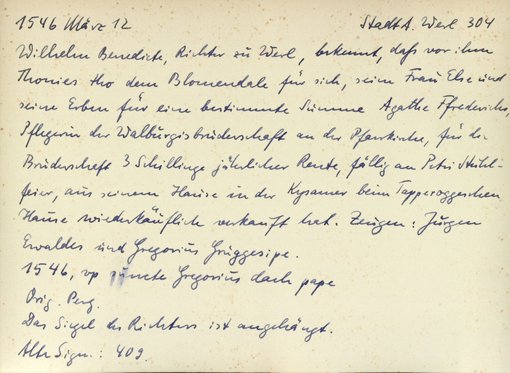 1546 März 12 StadtA. Werl 304
Wilhelm Benedicte, Richter zu Werl, bekennt, dass vor ihm
Thonies tho dem Blomendale für sich, seine Frau Else und
seine Erben für eine bestimmte Summe Agathe Frederichs,
Pflegerin der Walburgisbruderschaft an der Pfarrkirche, für die
Bruderschaft 3 Schillinge jährlicher Rente, fällig an Petri Stuhl-
feier, aus seinem Hause in der Kysamer beim Tapperoggeschen
Hause wiederkäuflich verkauft hat. Zeugen: Jürgen
Ewaldes und Gregorius Gruggesipe.
1546, up suncte Gregorius dach pape
Orig. Perg.
Das Siegel des Richters ist angehängt.
Alte Sign.: 409.